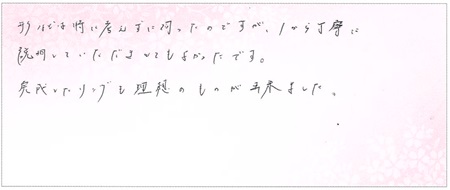 形などは特に考えずに伺ったのですが、1から丁寧に
説明していただきとてもよかったです。
完成したリングも理想のものが出来ました。